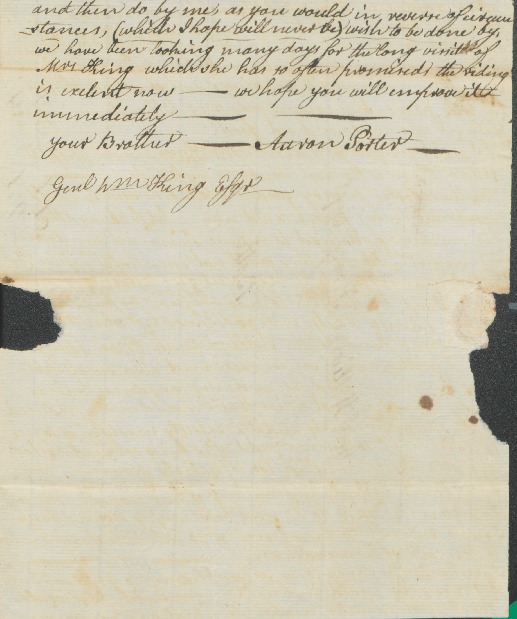 and then do by me, as you would in, reverse of circum
-stances, (which I hope will never be) wish to be done by,
we have been looking many days for the long visit of
Mrs King which she has so often promised, the riding
is exelent now — we hope you will improve it
immediately — —
your Brother — Aaron Porter —
Genl Wm King Esqr